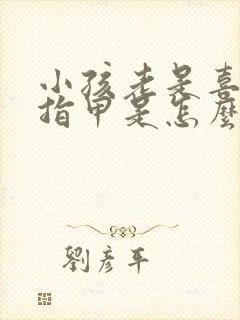 小孩老是喜
指甲是怎麼
劉彥平